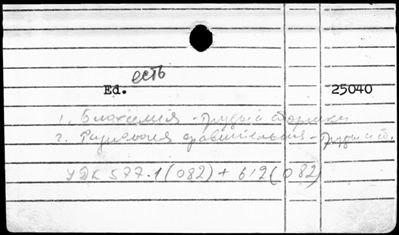 есть
Ed. 25040
1. Биохимия - Труды и сборники
2. Физиология сравнительная - Труды и сб.
УДК 577.1(082) + 612(082)